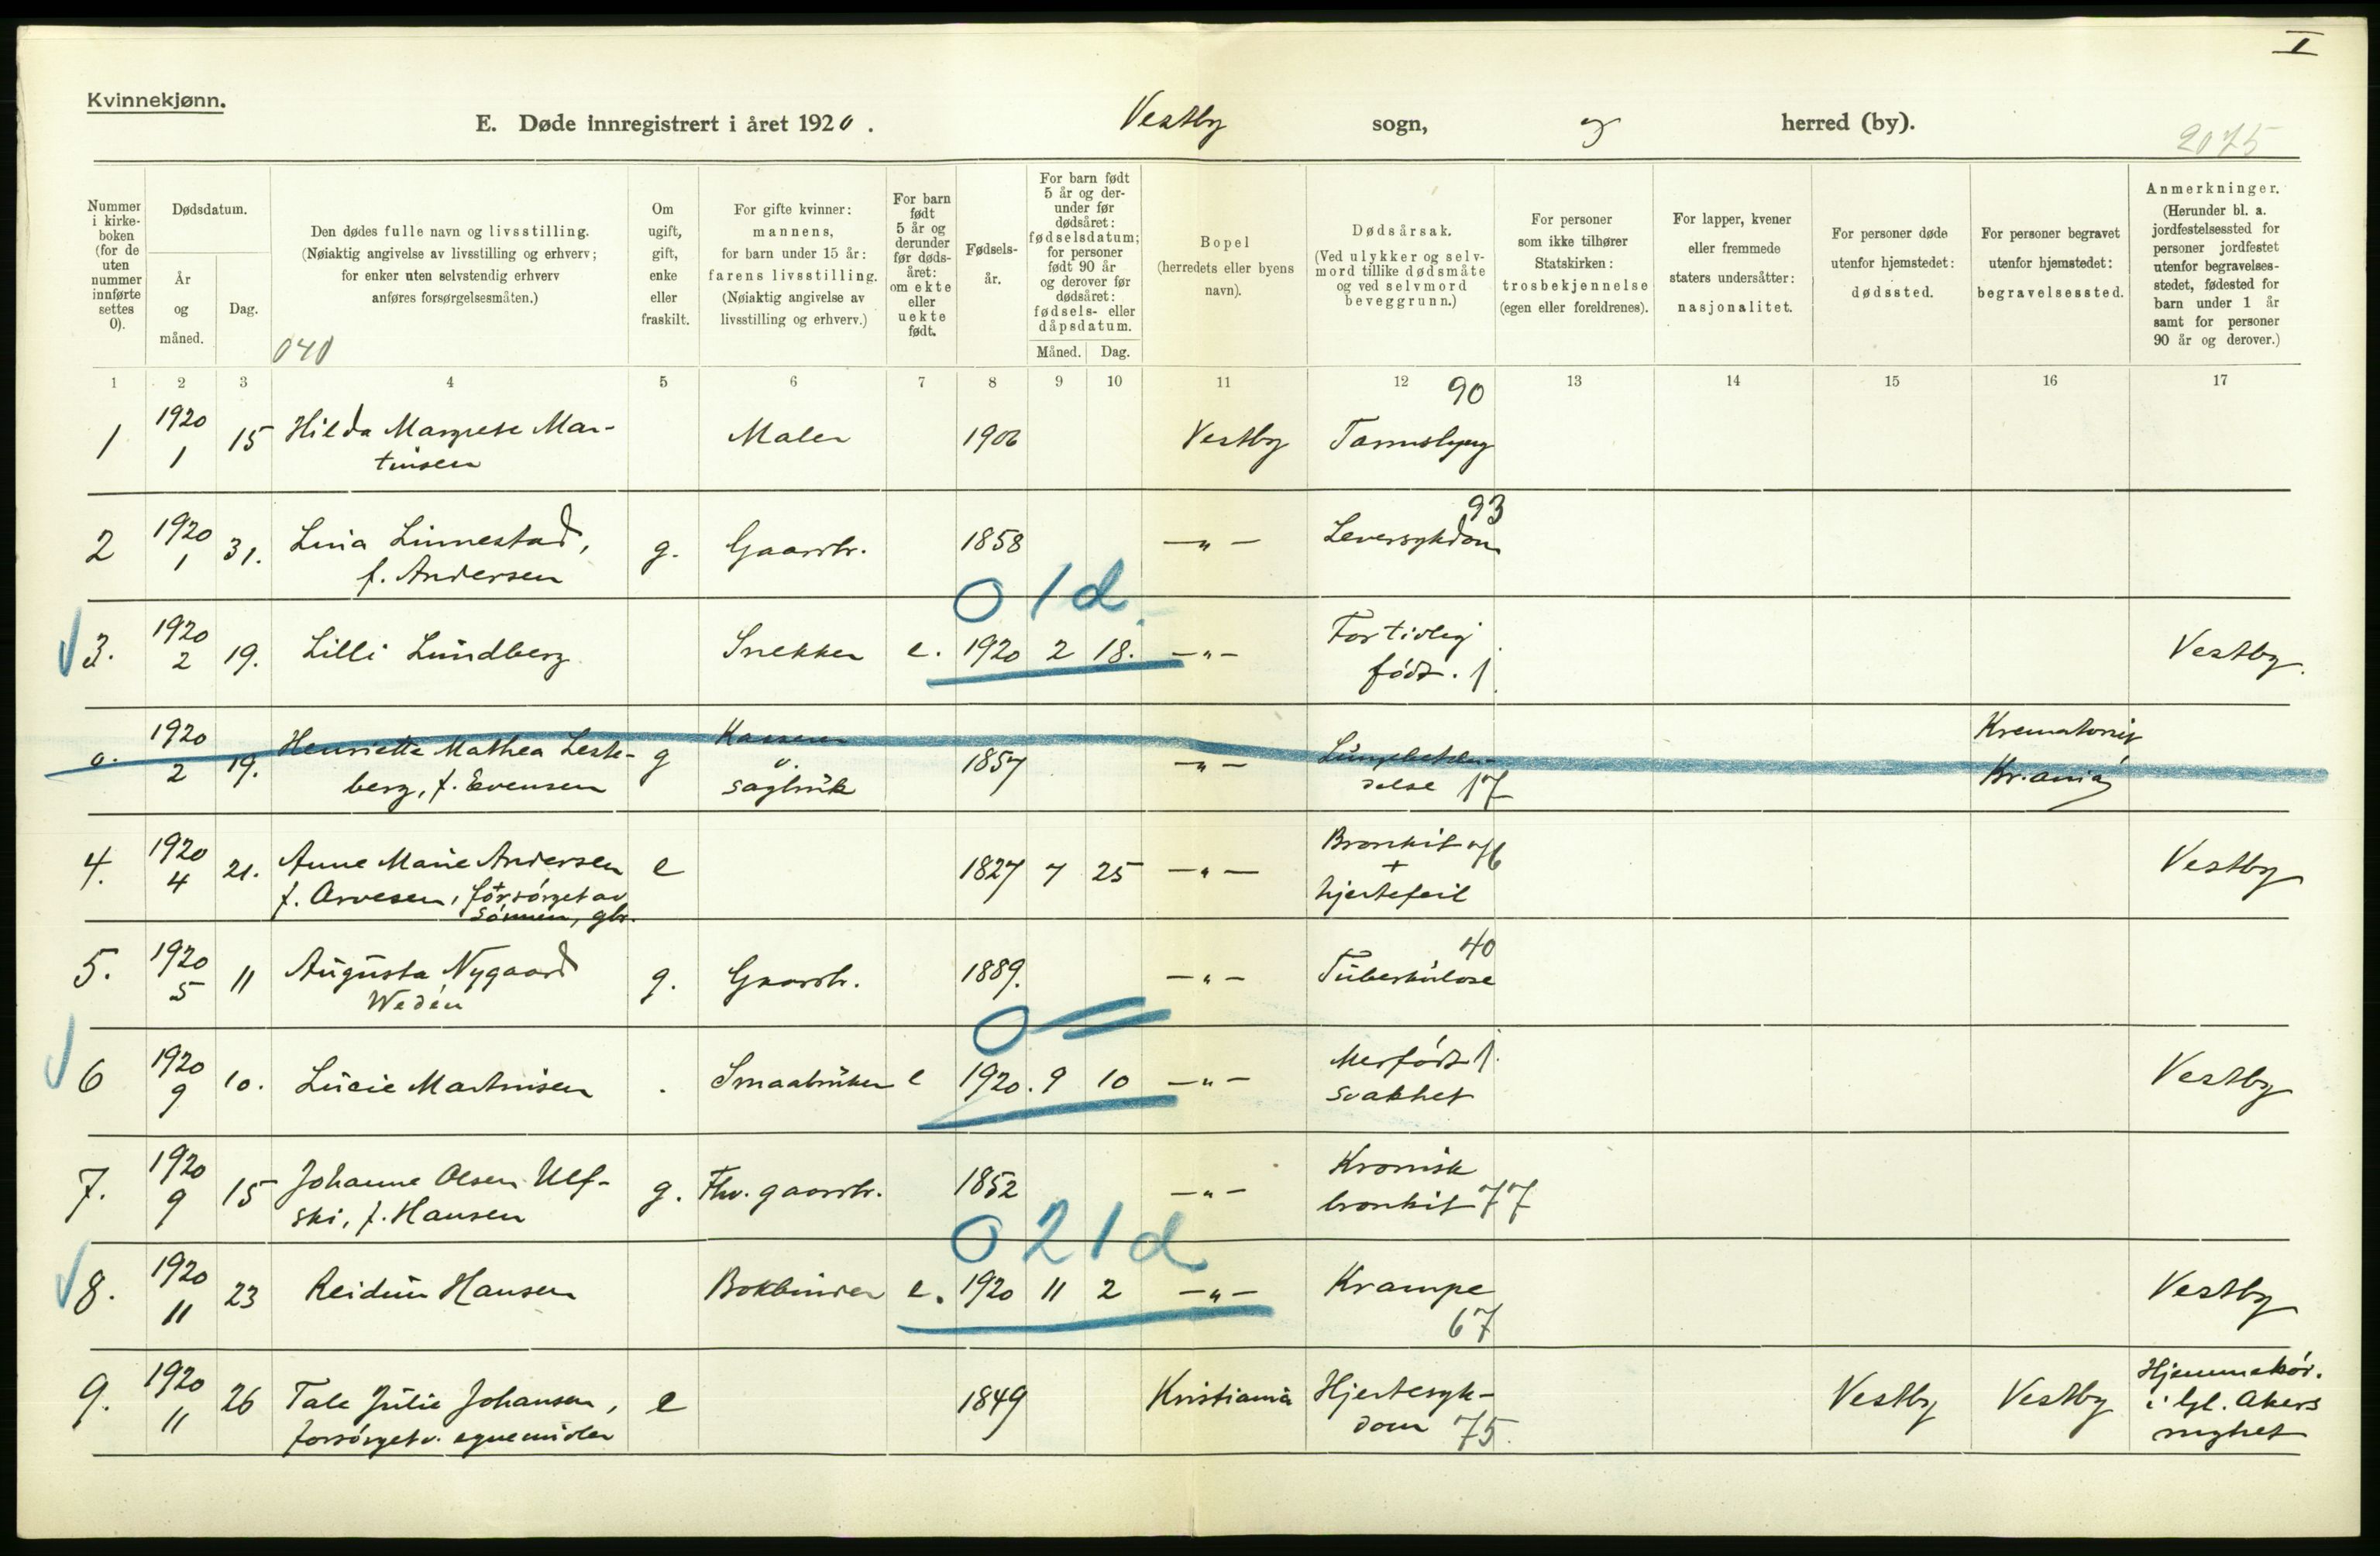 I
Kvinnekjønn.
E. Døde innregistrert i året 1920. Vestby sogn, og herred (by).
2075
Nummer i kirke-boken (for de uten nummer innførte settes 0).
Dødsdatum.
År og måned.
Dag.
Den dødes fulle navn og livsstilling.
(Nøiaktig angivelse av livsstilling og erhverv;
for enker uten selvstendig erhverv
anføres forsørgelsesmåten.)
040
Om ugift, gift, enke eller fraskilt.
For gifte kvinner:
mannens,
for barn under 15 år:
farens livsstilling.
(Nøiaktig angivelse av
livsstilling og erhverv.)
For barn født 5 år og derunder før døds-året: om ekte eller uekte født.
Fødsels-år.
For barn født 5 år og der-under før dødsåret: fødselsdatum; for personer født 90 år og derover før dødsåret: fødsels- eller dåpsdatum.
Måned. Dag.
Bopel
(herredets eller byens
navn).
Dødsårsak.
(Ved ulykker og selv-
mord tillike dødsmåte
og ved selvmord
beveggrunn.)
For personer
som ikke tilhører
Statskirken:
trosbekjennelse
(egen eller foreldrenes).
For lapper, kvener
eller fremmede
staters undersåtter:
nasjonalitet.
For personer døde
utenfor hjemstedet:
dødssted.
For personer begravet
utenfor hjemstedet:
begravelsessted.
Anmerkninger.
(Herunder bl. a.
jordfestelsessted for
personer jordfestet
utenfor begravelses-
stedet, fødested for
barn under 1 år
samt for personer
90 år og derover.)
1 2 3 4 5 6 7 8 9 10 11 12 13 14 15 16 17
90
1 1920 1 15 Hilda Margrete Mar-
tinsen Maler 1906 Vestby
93
2 1920 1 31. Lina Linnestad,
f. Andersen g. Gaardbr. 1858 —„— Leversykdom
0 1 d.
3. 1920 2 19. Lilli Lundberg Snekker e. 1920 2 18. —„— For tidlig
født. 1. Vestby.
0. 1920 2 19. Henriette Mathea Leske-
berg, f. Evensen g Kasserer
v.
sagbruk 1857 —„— Lungebeten-
delse 17 Krematoriet
Kr.ania
4. 1920 4 21. Anne Marie Andersen
f. Arvesen, forsørget av
sønnen, gbr. e 1827 7 25 —„— Bronkit 76
+
hjertefeil Vestby
40
5. 1920 5 11 Augusta Nygaard
Wedén g. Gaardbr. 1889. —„— Tuberkulose
0
6 1920 9 10. Lucie Martinsen . Smaabruker e 1920. 9 10 —„— Medfødt 1.
svakhet Vestby
7. 1920 9 15 Johanne Olsen Ulf-
ski, f. Hansen g. Fhv. gaardbr. 1852 —„— Kronisk
bronkit 77
0 21 d
8. 1920 11 23 Reidun Hansen Bokbinder e. 1920 11 2 —„— Krampe
67 Vestby
9. 1920 11 26 Tale Julie Johansen,
forsørget v. egne midler e 1849 Kristiania Hjertesyk-
dom 75. Vestby Vestby Hjemmehør.
i Gl. Akers
mghet